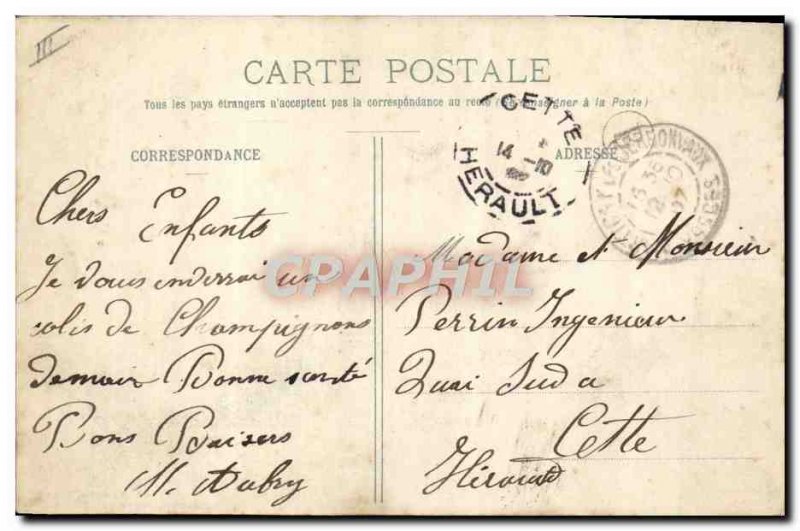 III
CARTE POSTALE
Tous les pays étrangers n'acceptent pas la correspondance au recto (Se renseigner à la Poste)
CORRESPONDANCE
ADRESSE
CETTE
14 -10
HERAULT
Chers Enfants
Je vous enverrai un
colis de Champignons
demain Bonne santé
Bons Baisers
M. Aubry
Madame et Monsieur
Perrin Ingenieur
Quai Sud a
Cette
Hérault
CPAPHIL